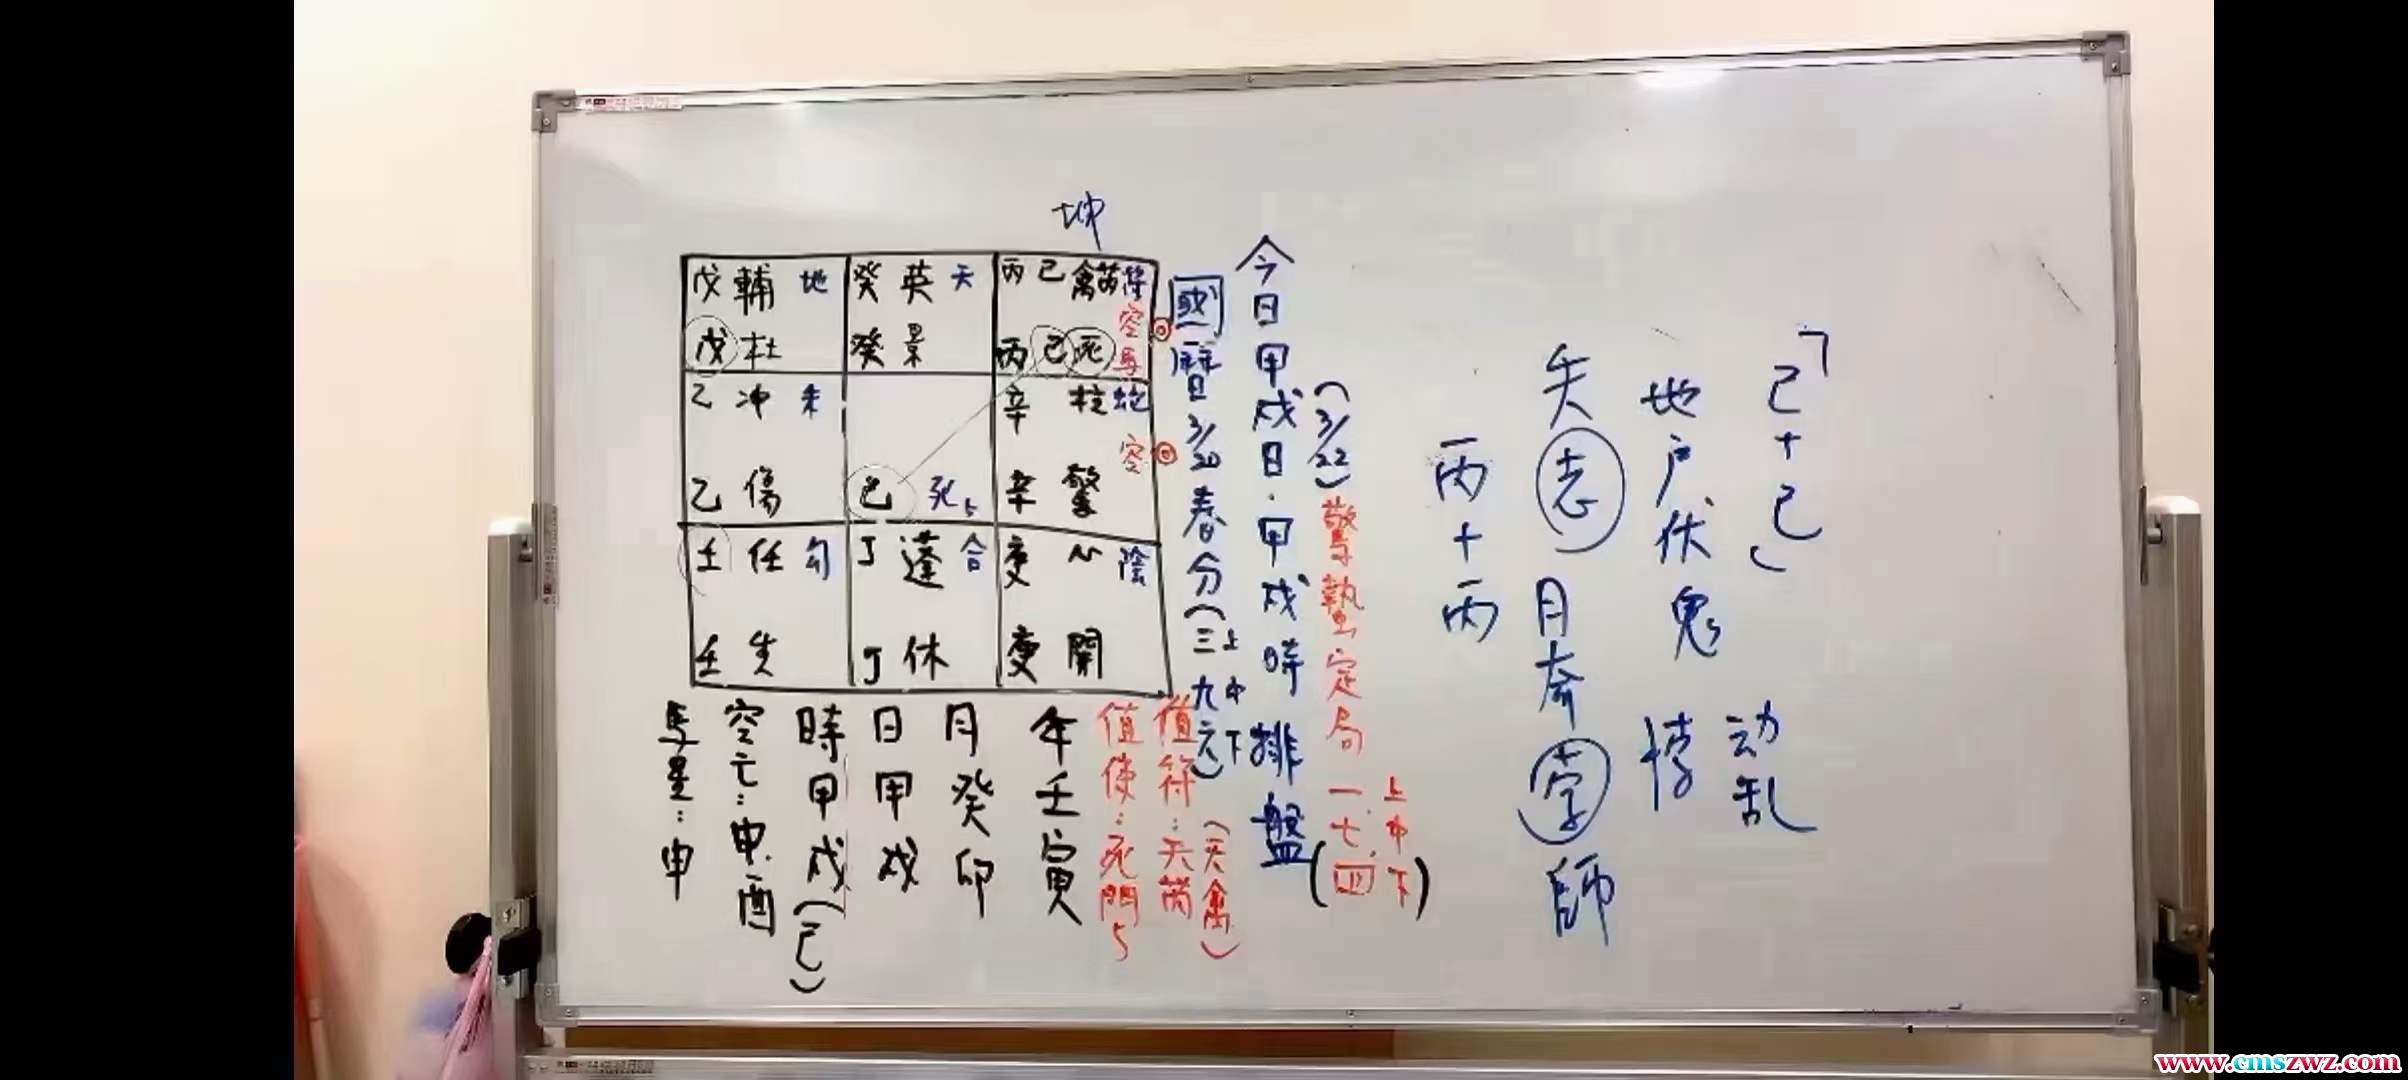 坤
戊 輔 地
戊 杜
癸 英 天
癸 景
丙 己 禽芮 符
空
丙 己 死 馬
乙 冲 朱
乙 傷
己 死5
辛 柱 蛇
空
辛 驚
壬 任 勾
壬 生
丁 蓬 合
丁 休
庚 心 陰
庚 開
「己+己」
地户伏鬼 动乱
悖
失志 月奇 字師
丙+丙
(3/22) 驚蟄定局 一、七、(四) 上中下
今日甲戌日·甲戌時排盤
國曆 3/20春分(三九六) 上中下
值符:天芮 (天禽)
值使:死門5
年 壬寅
月 癸卯
日 甲戌
時 甲戌(己)
空亡:申.酉
馬星:申
www.cmszwz.com